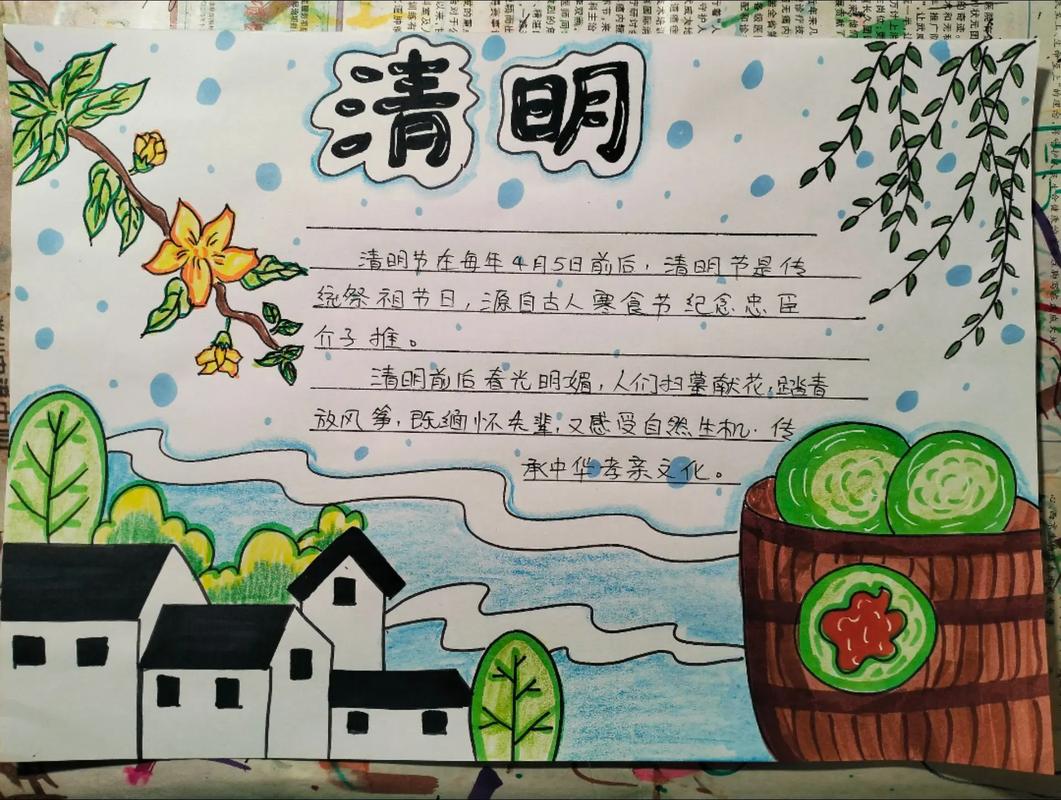 清明
清明节在每年4月5日前后，清明节是传
统祭祖节日，源自古人寒食节纪念忠臣
介子推。
清明前后春光明媚，人们扫墓献花，踏青
放风筝，既缅怀先辈，又感受自然生机·传
承中华孝亲文化。